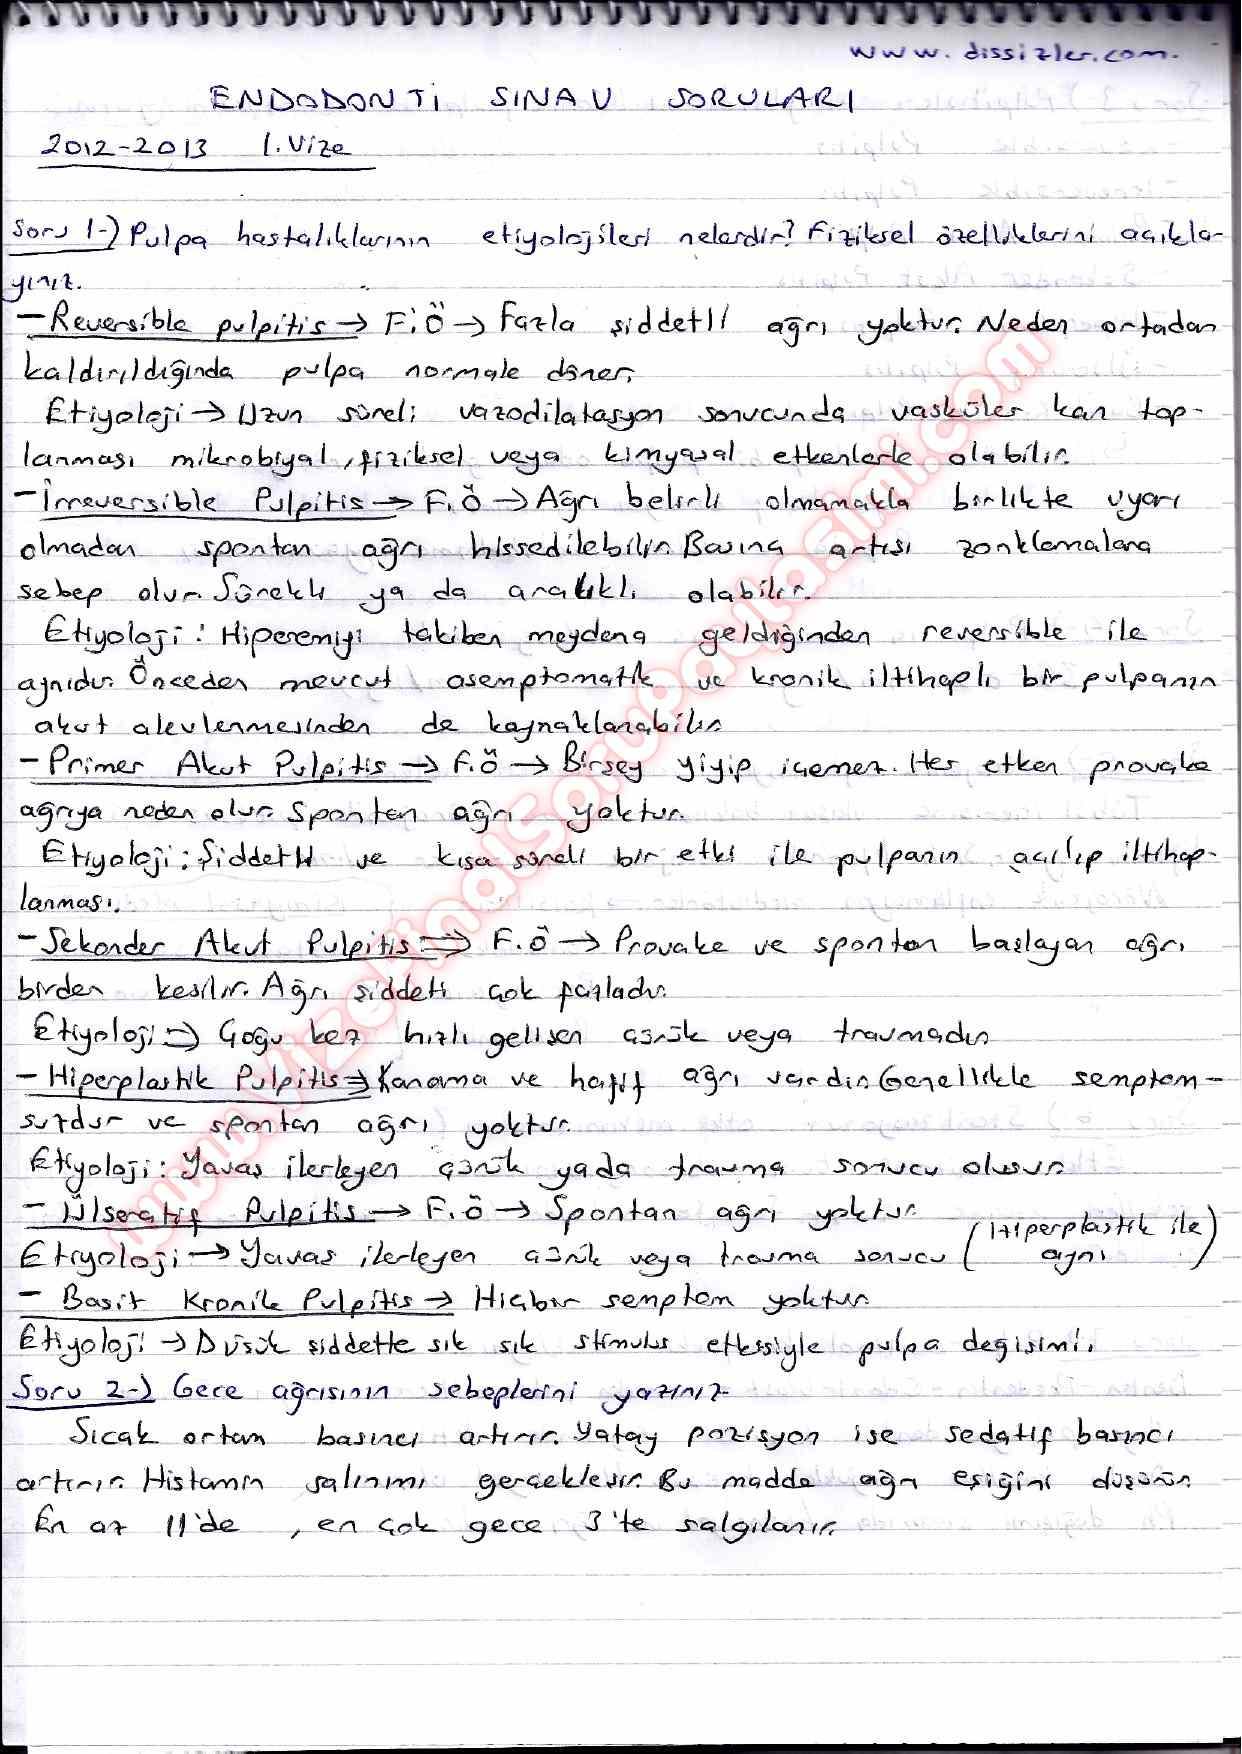 www.dissizler.com.
ENDODONTİ SINAV SORULARI
2012-2013 1.Vize
Soru 1-) Pulpa hastalıklarının etiyolojileri nelerdir? Fiziksel özelliklerini açıkla-
yınız.
- Reversible pulpitis → F.Ö → Fazla şiddetli ağrı yoktur. Neden ortadan
kaldırıldığında pulpa normale döner.
Etiyoloji → Uzun süreli vazodilatasyon sonucunda vasküler kan top-
lanması mikrobiyal, fiziksel veya kimyasal etkenlerle olabilir.
- İrreversible Pulpitis → F.Ö → Ağrı belirli olmamakla birlikte uyarı
olmadan spontan ağrı hissedilebilir. Basınç artışı zonklamalara
sebep olur. Sürekli ya da aralıklı olabilir.
Etiyoloji: Hiperemiyi takiben meydana geldiğinden reversible ile
aynıdır. Önceden mevcut, asemptomatik ve kronik iltihaplı bir pulpanın
akut alevlenmesinden de kaynaklanabilir.
- Primer Akut Pulpitis → F.Ö → Birşey yiyip içemez. Her etken provake
ağrıya neden olur. Spontan ağrı yoktur.
Etiyoloji: Şiddetli ve kısa süreli bir etki ile pulpanın açılıp iltihap-
lanması.
- Sekonder Akut Pulpitis ⇒ F.Ö → Provake ve spontan başlayan ağrı
birden kesilir. Ağrı şiddeti çok fazladır.
Etiyoloji ⇒ Çoğu kez hızlı gelişen çürük veya travmadır.
- Hiperplastik Pulpitis ⇒ Kanama ve hafif ağrı vardır. Genellikle semptom-
suzdur ve spontan ağrı yoktur.
Etiyoloji: Yavaş ilerleyen çürük yada travma sonucu oluşur.
- Ülseratif Pulpitis → F.Ö → Spontan ağrı yoktur.
Etiyoloji → Yavaş ilerleyen çürük veya travma sonucu (Hiperplastik ile aynı)
- Basit Kronik Pulpitis → Hiçbir semptom yoktur.
Etiyoloji → Düşük şiddette sık sık stimulus etkisiyle pulpa değişimi.
Soru 2-) Gece ağrısının sebeplerini yazınız
Sıcak ortam basıncı artırır. Yatay pozisyon ise sedatif basıncı
artırır. Histamin salınımı gerçekleşir. Bu madde ağrı eşiğini düşürür.
En az 11'de, en çok gece 3'te salgılanır.
www.VizeFinalSoruPaylasimi.com